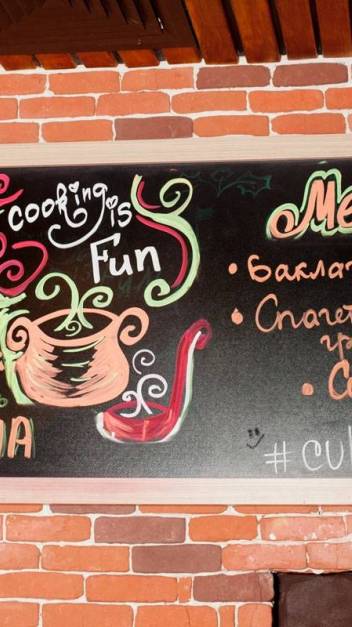 cooking is
Fun
Ме
• Баклаж
• Спагет
гр
• Со
# cul